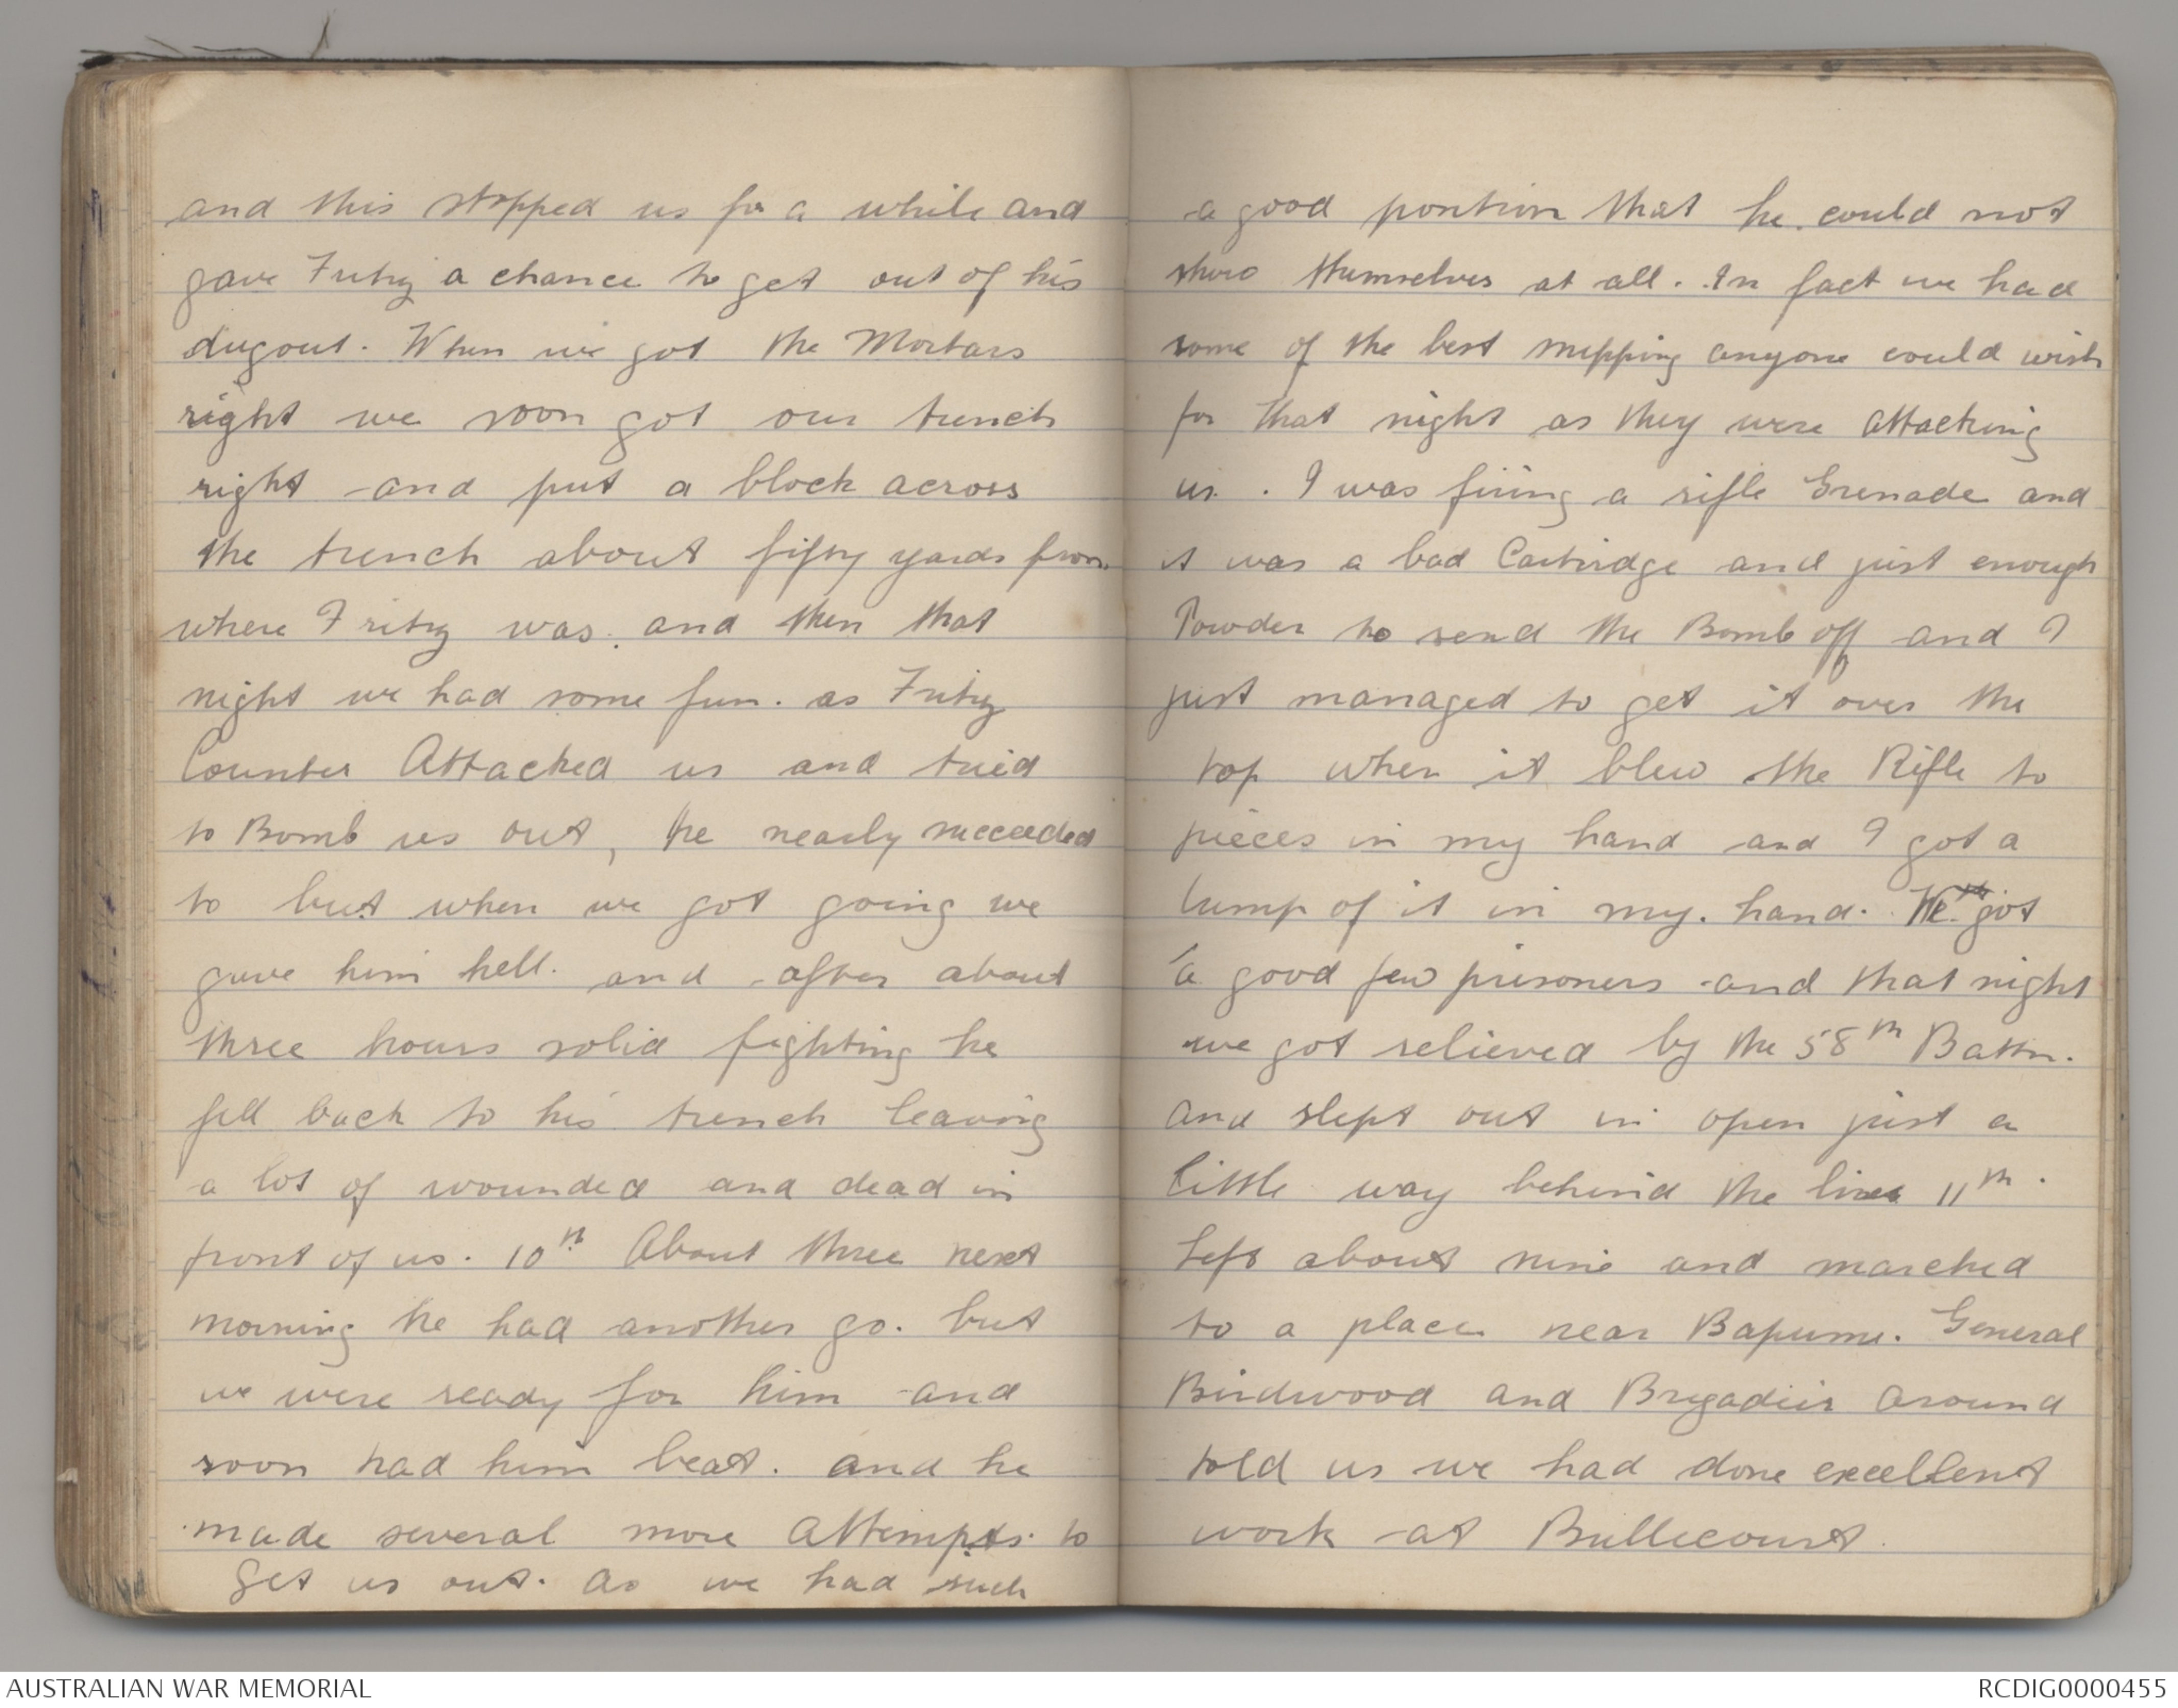 and this stopped us for a while and
gave Fritzy a chance to get out of his
dugout. When we got the Mortars
right we soon got our trench
right and put a block across
the trench about fifty yards from
where Fritzy was. and then that
night we had some fun. as Fritzy
Counter Attacked us and tried
to Bomb us out, he nearly succeeded
to but when we got going we
gave him hell. and after about
three hours solid fighting he
fell back to his trench leaving
a lot of wounded and dead in
front of us. 10th About three next
morning he had another go. but
we were ready for him and
soon had him beat. and he
made several more attempts to
get us out. as we had such
a good position that he could not
show themselves at all. In fact we had
some of the best snipping anyone could wish
for that night as they were attacking
us. I was firing a rifle Grenade and
it was a bad Cartridge and just enough
Powder to send the Bomb off and I
just managed to get it over the
top when it blew the Rifle to
pieces in my hand and I got a
lump of it in my hand. We got
a good few prisoners and that night
we got relieved by the 58th Battn.
and slept out in open just a
little way behind the lines 11th.
Left about nine and marched
to a place near Bapume. General
Birdwood and Brigadier around
told us we had done excellent
work at Bullecourt.
AUSTRALIAN WAR MEMORIAL
RCDIG0000455